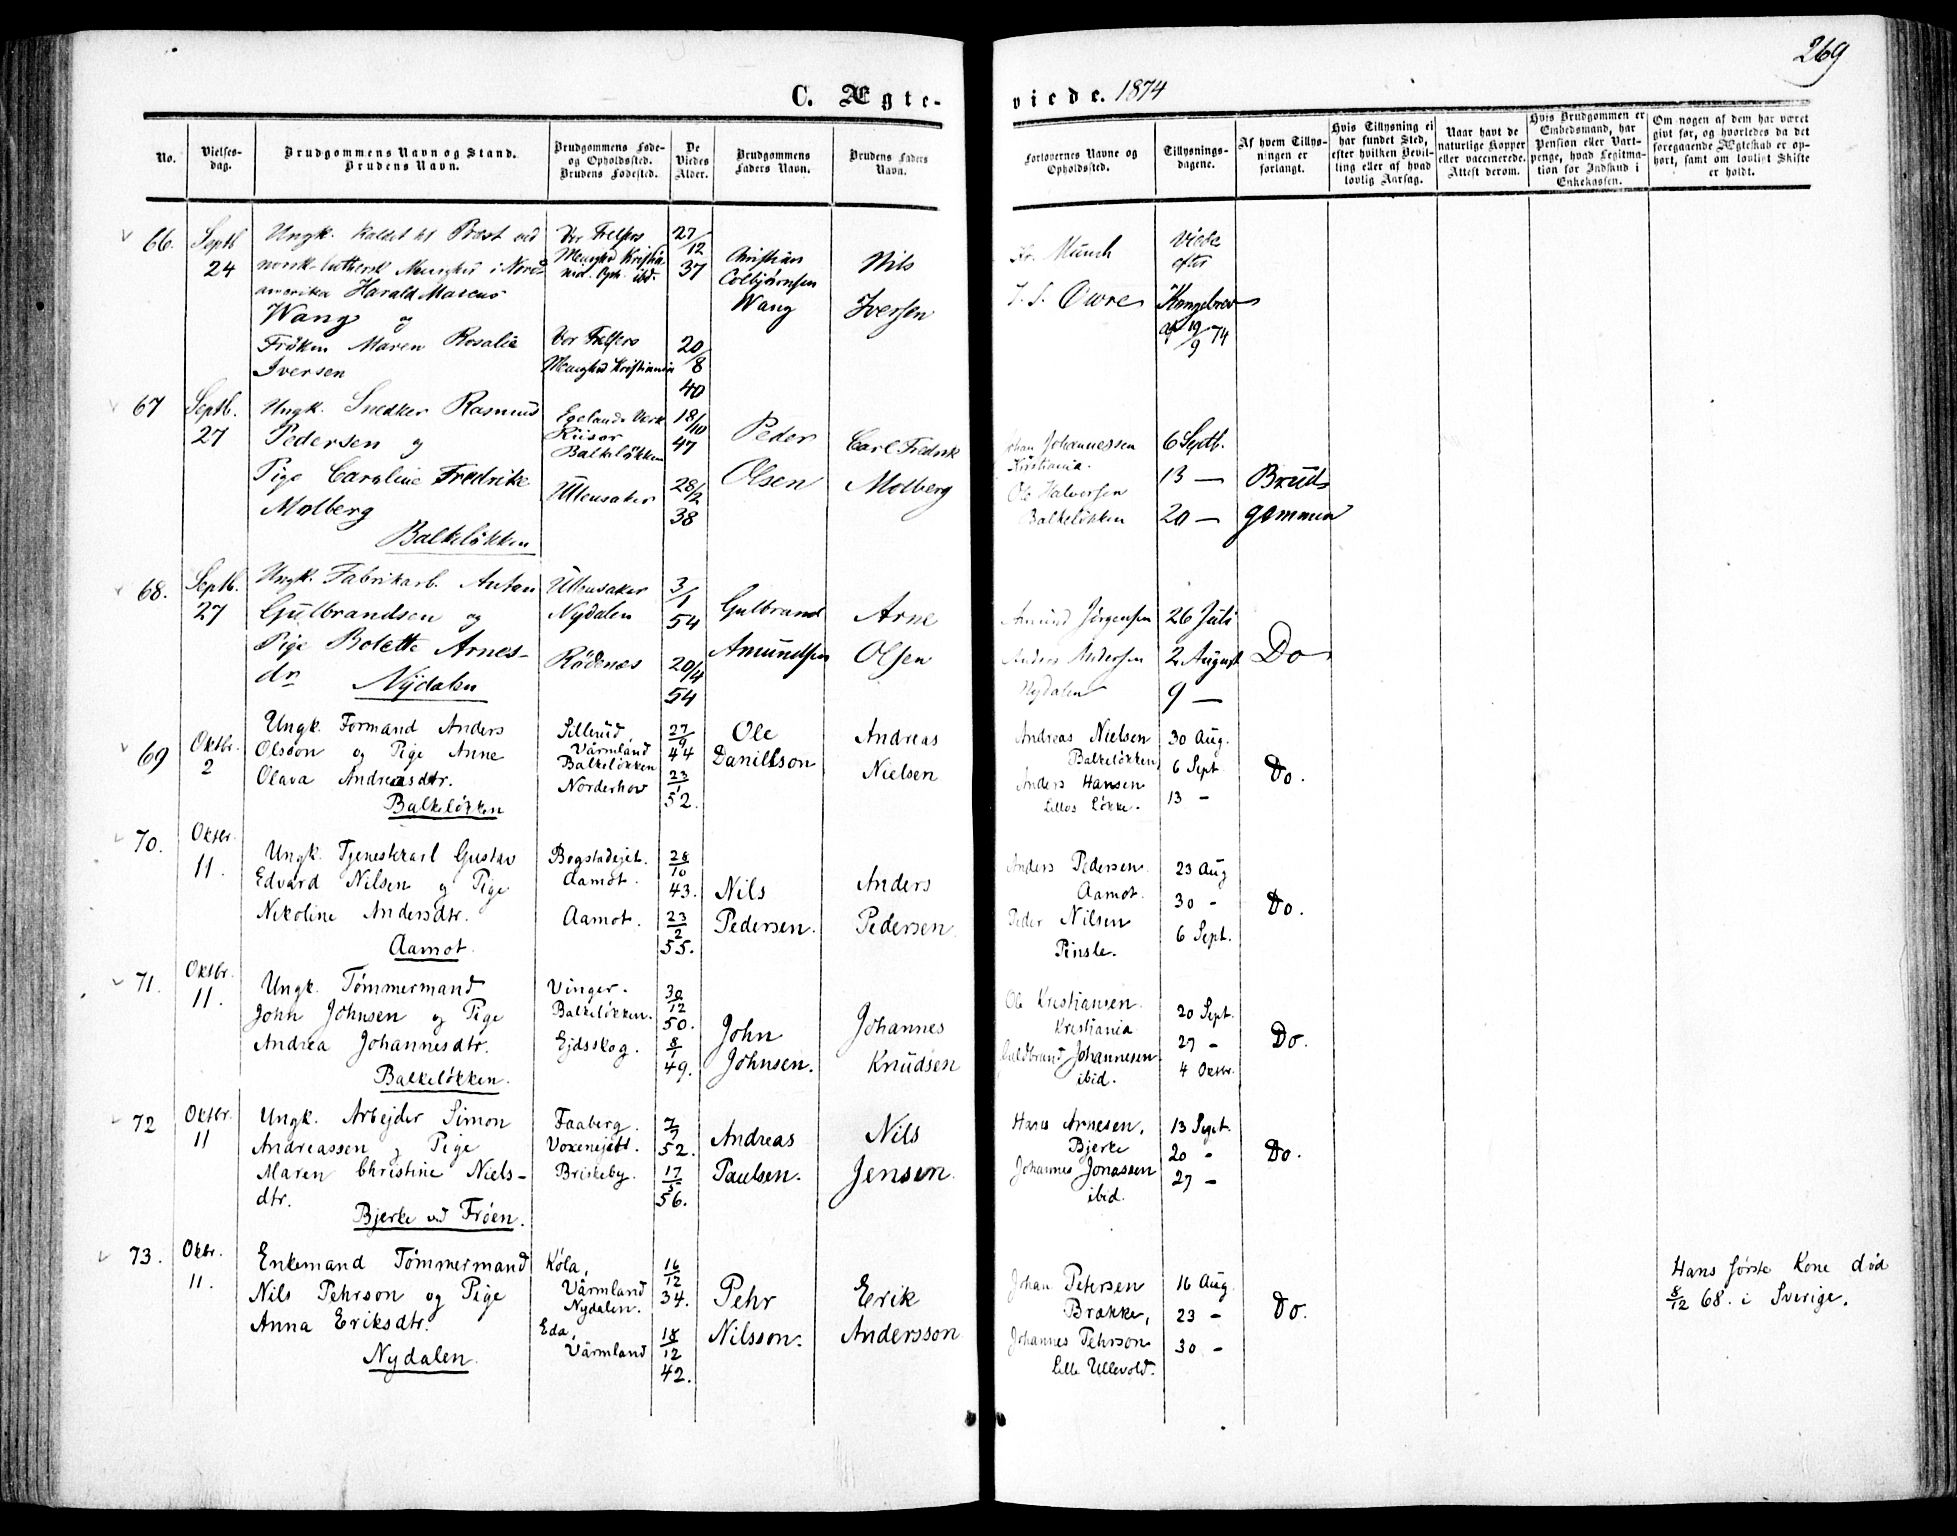 269
C. Ægte-
viede. 1874
No.
Vielses-
dag.
Brudgommens Navn og Stand.
Brudens Navn.
Brudgommens Føde-
og Opholdssted.
Brudens Fødested.
De
Viedes
Alder.
Brudgommens
Faders Navn.
Brudens Faders
Navn.
Forlovernes Navne og
Opholdssted.
Tillysnings-
dagene.
Af hvem Tillys-
ningen er
forlangt.
Hvis Tillysning ei
har fundet Sted,
efter hvilken Bevil-
ling eller af hvad
lovlig Aarsag.
Naar havt de
naturlige Kopper
eller vaccinerede.
Attest derom.
Hvis Brudgommen er
Embedsmand, har
Pension eller Vart-
penge, hvad Legitima-
tion for Indskud i
Enkekassen.
Om nogen af dem har været
givt før, og hvorledes da det
foregaaende Ægteskab er op-
hørt, samt om lovligt Skifte
er holdt.
66.
Septb
24
Ungk. kaldet til Præst ved
norsk-luthersk Menighed i Nord-
amerika Harald Marcus
Wang og
Frøken Maren Rosalie
Iversen
Vor Frelsers
Menighed Kristia-
nia. Oph. ibd.
Vor Frelsers
Menighed Kristiania
27/12
37
20/8
40
Christian
Colbjørnsen
Wang
Nils
Iversen
Kr. Munch
J. S. Owre
Viede
efter
Kongebrev
af 19/9 74
67
Septb.
27
Ungk. Snedker Rasmus
Pedersen og
Pige Caroline Fredrike
Molberg
Balkeløkken
Egelands Verk
Riisør
Balkeløkken
Ullensaker
18/10
47
28/2
38
Peder
Olsen
Carl Fredrik
Molberg
Johan Johannessen
Kristiania.
Ole Halversen
Balkeløkken
6 Septb.
13 —
20 —
Brud-
gommen
68.
Septb.
27
Ungk. Fabrikarb. Anton
Gulbrandsen og
Pige Bolette Arnes-
dr
Nydalen
Ullensaker
Nydalen
Rødenæs
3/1
54
20/4
54
Gulbrand
Amundsen
Arne
Olsen
Amund Jørgensen
Anders Andersen
Nydalen
26 Juli
2 August
9 —
Do
69
Oktbr.
2
Ungk. Formand Anders
Olsson og Pige Anne
Olava Andreasdtr.
Balkeløkken
Sillerud
Värmland
Balkeløkken
Norderhov
27/9
44
23/1
52.
Ole
Daniellson
Andreas
Nielsen
Andreas Nielsen
Balkeløkken,
Anders Hansen
Lilleos Løkke.
30 Aug.
6 Sept
13 -
Do.
70.
Oktbr.
11.
Ungk. Tjenestkarl Gustav
Edvard Nilsen og Pige
Nikoline Andersdtr.
Aamot.
Bogstadejet.
Aamot.
Aamot.
28/10
43.
23/2
55.
Nils
Pedersen.
Anders
Pedersen.
Anders Pedersen.
Aamot.
Peder Nilsen
Pinsle.
23 Aug
30 -
6 Sept.
Do.
71.
Oktbr.
11.
Ungk. Tømmermand
John Johnsen og Pige
Andrea Johannesdtr.
Balkeløkken.
Vinger.
Balkeløkken.
Ejdsskog.
30/12
50.
8/1
49.
John
Johnsen.
Johannes
Knudsen
Ole Kristiansen.
Kristiania
Guldbrand Johannesen.
ibid.
20 Sept.
27 -
4 Oktbr.
Do.
72
Oktbr.
11
Ungk. Arbejder Simon
Andreassen og Pige
Maren Christine Niels-
dtr.
Bjerke ved Frøen.
Faaberg.
Voxenejet.
Briskeby.
7/7
52.
17/5
56.
Andreas
Paulsen.
Nils
Jensen.
Hans Arnesen,
Bjerke
Johannes Jonassen
ibid.
13 Sept.
20 -
27 -
Do.
73.
Oktbr.
11.
Enkemand Tømmermand
Nils Pehrson og Pige
Anna Eriksdtr.
Nydalen.
Køla,
Värmland
Nydalen.
Eda,
Värmland
16/12
34.
18/12
42.
Pehr
Nilsson.
Erik
Andersson
Johan Petersen
Brække,
Johannes Pehrson
Lille Ullevold.
16 Aug.
23 -
30 -
Do.
Hans første Kone død
8/12 68. i Sverige.